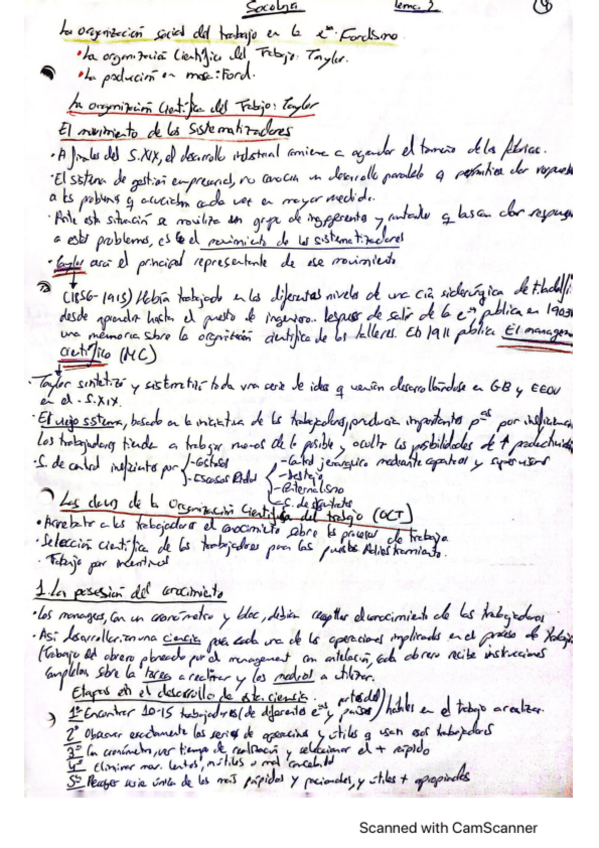 Sociología Tema 2
La organización social del trabajo en la eª: Fordismo
• La organización Científica del Trabajo: Taylor.
• La producción en masa: Ford.
La organización Científica del Trabajo: Taylor
El movimiento de los sistematizadores
• A finales del S.XIX, el desarrollo industrial comienza a agrandar el tamaño de las fábricas.
• El sistema de gestión empresarial, no conocía un desarrollo paralelo q permitiera dar respuesta
a los problemas q acuciaban cada vez en mayor medida.
• Ante esta situación se moviliza un grupo de ingenieros y q buscan dar respuesta
a estos problemas, es el movimiento de los sistematizadores
• Taylor será el principal representante de ese movimiento
(1856-1915) Había trabajado en los diferentes niveles de una cía siderúrgica de Filadelfia
desde aprendiz hasta el puesto de ingeniero. Después de salir de la eª, publica en 1903
una memoria sobre la organización científica de los talleres. En 1911 publica El management
científico (MC)
• Taylor sintetizó y sistematizó toda una serie de ideas q venían desarrollándose en GB y EEUU
en el S.XIX.
• El viejo sistema, basado en la iniciativa de los trabajadores, producía importantes por
Los trabajadores tienden a trabajar menos de lo posible y ocultar las posibilidades de ↑ productividad
• S. de control ineficiente por - Costosos
- Escasos Rdos
- Control jerárquico mediante capataces y supervisores
- Destajo
- Paternalismo
- S. de
Las claves de la Organización Científica del trabajo (OCT)
• Arrebatar a los trabajadores el conocimiento sobre los procesos de trabajo.
• Selección científica de los trabajadores para los puestos. Adiestramiento.
• Trabajo por incentivos
1. La posesión del conocimiento
• Los managers, con un cronómetro y bloc, debían recopilar el conocimiento de los trabajadores
• Así desarrollarían una ciencia para cada una de las operaciones implicadas en el proceso de trabajo
(Trabajo del obrero planeado por el management con antelación, cada obrero recibe instrucciones
completas sobre la tarea a realizar y los medios a utilizar.
Etapas en el desarrollo de esta ciencia.
1º Encontrar 10-15 trabajadores (de diferentes eªs y países) hábiles en el trabajo a realizar.
2º Observar exactamente las series de operaciones y útiles q usan esos trabajadores
3º Con cronómetro, ver tiempo de realización y seleccionar el + rápido
4º Eliminar mov. lentos, inútiles o mal
5º Recoger serie única de los mov rápidos y racionales, y útiles + apropiados
Scanned with CamScanner